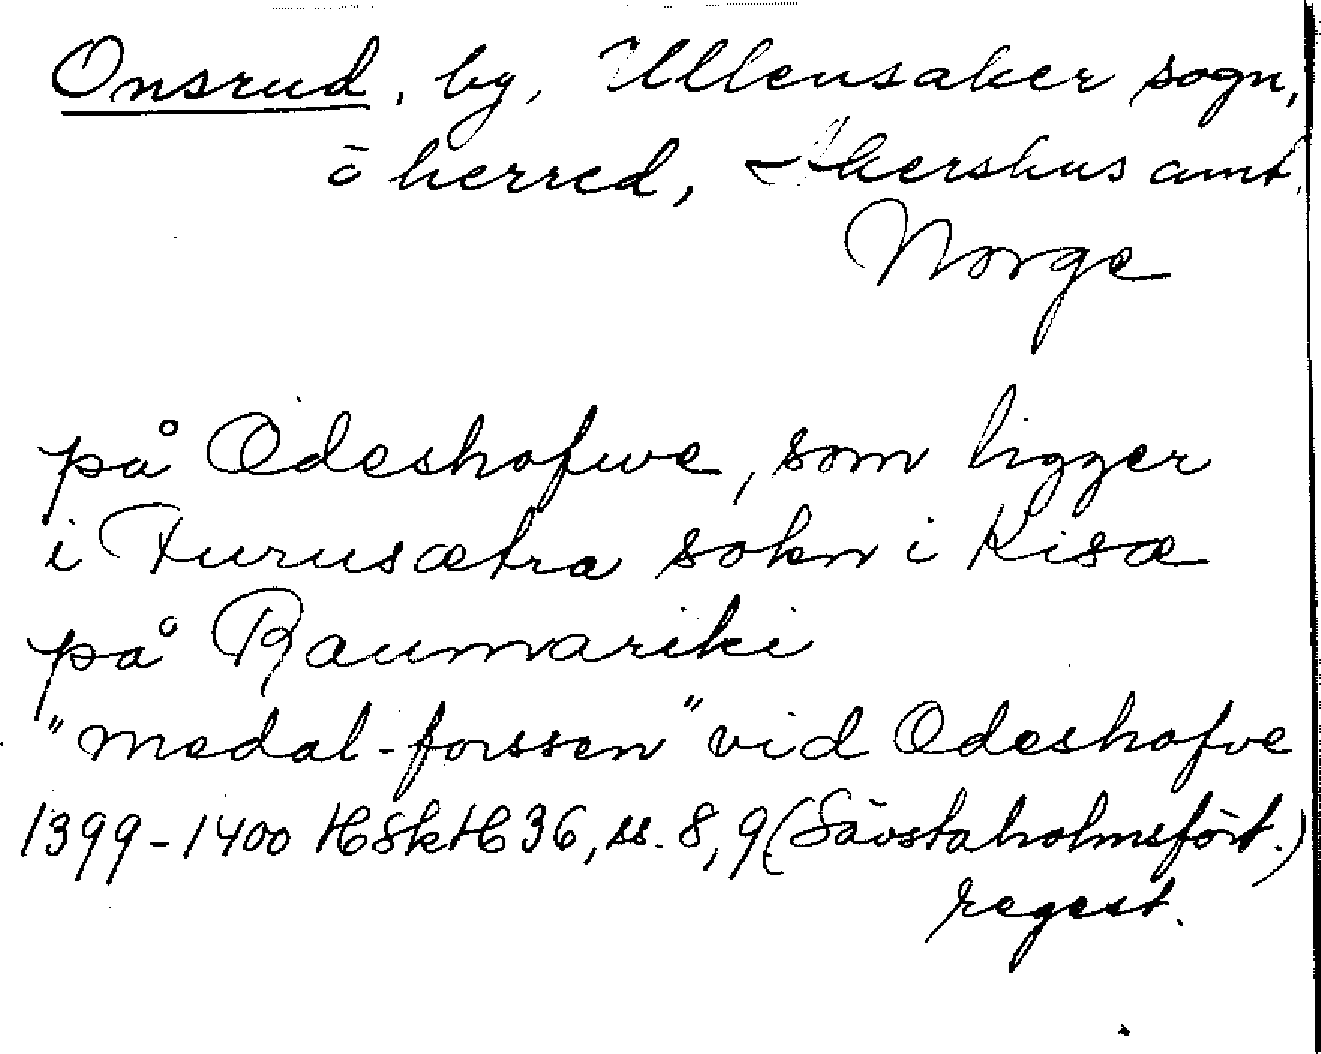 Onsrud, by, Ullensaker sogn,
o herred, Akershus amt,
Norge
på Odeshofwe, som ligger
i Furusætra sokn i Kisæ
på Raumariki
"medal-forssen" vid Odeshofve
1399-1400 HSkH 36, ss. 8, 9 (Sävstaholmsfört.)
regest.